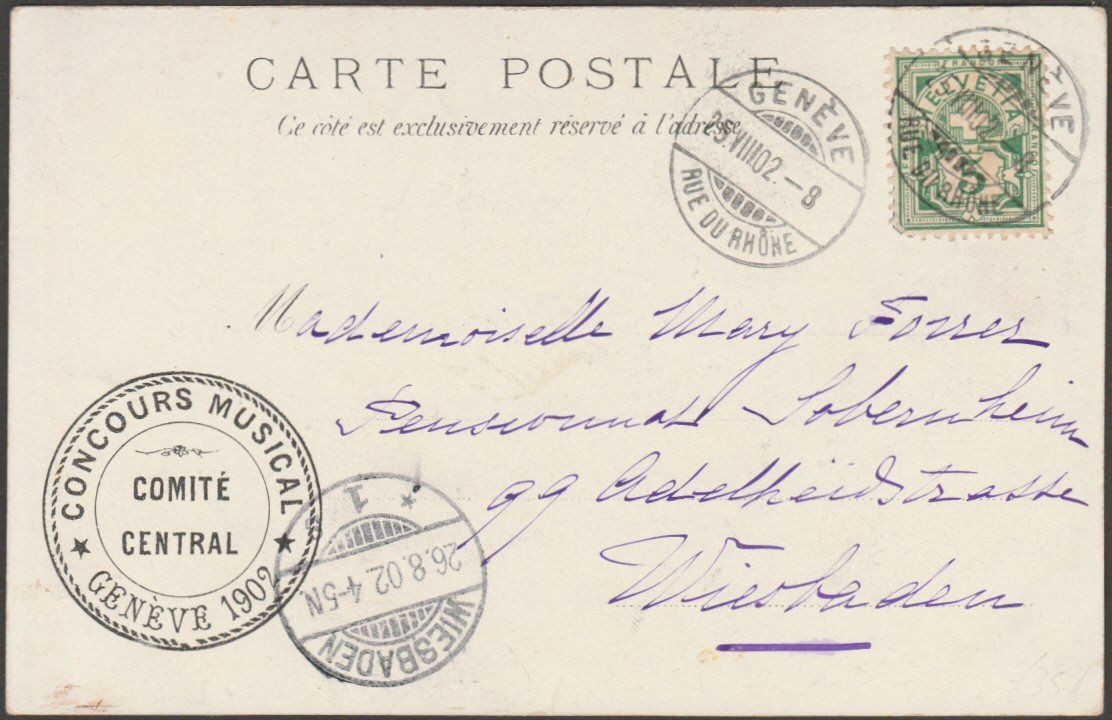 CARTE POSTALE
Ce côté est exclusivement réservé à l'adresse
GENÈVE
25.VIII.02.–8
RUE DU RHÔNE
GENÈVE
RUE DU RHÔNE
HELVETIA
FRANCO
5
Mademoiselle Mary Forrer
Pensionnat Sobernheim
99 Adelheidstrasse
Wiesbaden
CONCOURS MUSICAL
COMITÉ
CENTRAL
GENÈVE 1902
WIESBADEN
26.8.02.4-5N
* 1